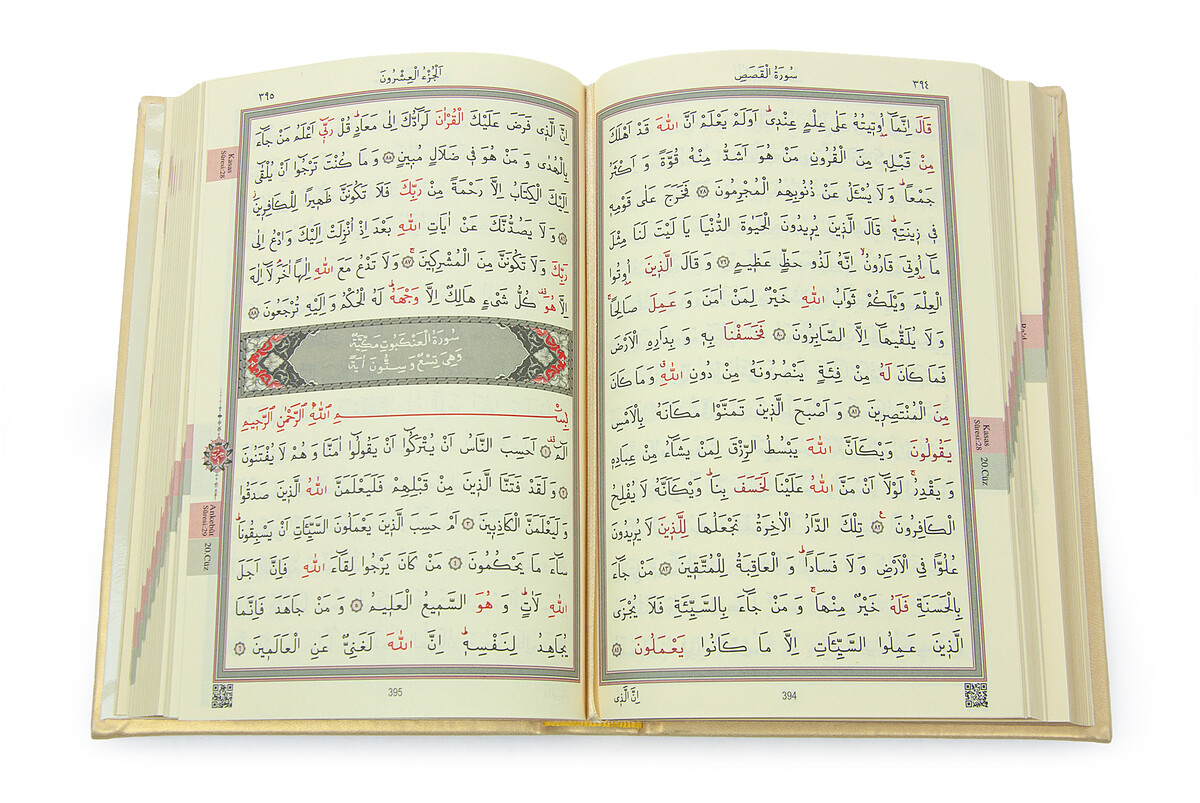 سُورَةُ الْقَصَصِ
٣٩٤
قَالَ اِنَّمَٓا اُو۫ت۪يتُهُ عَلٰى عِلْمٍ عِنْد۪يۜ اَوَلَمْ يَعْلَمْ اَنَّ اللّٰهَ قَدْ اَهْلَكَ
مِنْ قَبْلِه۪ مِنَ الْقُرُونِ مَنْ هُوَ اَشَدُّ مِنْهُ قُوَّةً وَ اَكْثَرُ
جَمْعاًۜ وَلَا يُسْـَٔلُ عَنْ ذُنُوبِهِمُ الْمُجْرِمُونَ ﴿٧٨﴾ فَخَرَجَ عَلٰى قَوْمِه۪
ف۪ي ز۪ينَتِه۪ۜ قَالَ الَّذ۪ينَ يُر۪يدُونَ الْحَيٰوةَ الدُّنْيَا يَا لَيْتَ لَنَا مِثْلَ
مَٓا اُو۫تِيَ قَارُونُۙ اِنَّهُ لَذُو حَظٍّ عَظ۪يمٍ ﴿٧٩﴾ وَ قَالَ الَّذ۪ينَ اُو۫تُوا
الْعِلْمَ وَيْلَكُمْ ثَوَابُ اللّٰهِ خَيْرٌ لِمَنْ اٰمَنَ وَ عَمِلَ صَالِحاًۚ
وَ لَا يُلَقّٰيهَٓا اِلَّا الصَّابِرُونَ ﴿٨٠﴾ فَخَسَفْنَا بِه۪ وَ بِدَارِهِ الْاَرْضَ
فَمَا كَانَ لَهُ مِنْ فِئَةٍ يَنْصُرُونَهُ مِنْ دُونِ اللّٰهِۗ وَ مَا كَانَ
مِنَ الْمُنْتَصِر۪ينَ ﴿٨١﴾ وَ اَصْبَحَ الَّذ۪ينَ تَمَنَّوْا مَكَانَهُ بِالْاَمْسِ
يَقُولُونَ وَيْكَاَنَّ اللّٰهَ يَبْسُطُ الرِّزْقَ لِمَنْ يَشَٓاءُ مِنْ عِبَادِه۪
وَ يَقْدِرُۚ لَوْلَٓا اَنْ مَنَّ اللّٰهُ عَلَيْنَا لَخَسَفَ بِنَاۜ وَيْكَاَنَّهُ لَا يُفْلِحُ
الْكَافِرُونَ ﴿٨٢﴾ تِلْكَ الدَّارُ الْاٰخِرَةُ نَجْعَلُهَا لِلَّذ۪ينَ لَا يُر۪يدُونَ
عُلُوًّا فِي الْاَرْضِ وَ لَا فَسَاداًۜ وَ الْعَاقِبَةُ لِلْمُتَّق۪ينَ ﴿٨٣﴾ مَنْ جَٓاءَ
بِالْحَسَنَةِ فَلَهُ خَيْرٌ مِنْهَاۚ وَ مَنْ جَٓاءَ بِالسَّيِّئَةِ فَلَا يُجْزَى
الَّذ۪ينَ عَمِلُوا السَّيِّـَٔاتِ اِلَّا مَا كَانُوا يَعْمَلُونَ ﴿٨٤﴾
اِنَّ الَّذ۪ي
394
Kasas
Sûresi:28
20.Cüz
اَلْجُزْءُ الْعِشْرُونَ
٣٩٥
اِنَّ الَّذ۪ي فَرَضَ عَلَيْكَ الْقُرْاٰنَ لَرَٓادُّكَ اِلٰى مَعَادٍۜ قُلْ رَبّ۪ٓي اَعْلَمُ مَنْ جَٓاءَ
بِالْهُدٰى وَ مَنْ هُوَ ف۪ي ضَلَالٍ مُب۪ينٍ ﴿٨٥﴾ وَ مَا كُنْتَ تَرْجُٓوا اَنْ يُلْقٰٓى
اِلَيْكَ الْكِتَابُ اِلَّا رَحْمَةً مِنْ رَبِّكَ فَلَا تَكُونَنَّ ظَه۪يراً لِلْكَافِر۪ينَۘ
﴿٨٦﴾ وَ لَا يَصُدُّنَّكَ عَنْ اٰيَاتِ اللّٰهِ بَعْدَ اِذْ اُنْزِلَتْ اِلَيْكَ وَادْعُ اِلٰى
رَبِّكَ وَ لَا تَكُونَنَّ مِنَ الْمُشْرِك۪ينَۚ ﴿٨٧﴾ وَ لَا تَدْعُ مَعَ اللّٰهِ اِلٰهاً اٰخَرَۢ لَٓا اِلٰهَ
اِلَّا هُوَ۠ كُلُّ شَيْءٍ هَالِكٌ اِلَّا وَجْهَهُۜ لَهُ الْحُكْمُ وَ اِلَيْهِ تُرْجَعُونَ ﴿٨٨﴾
سُورَةُ الْعَنْكَبُوتِ مَكِّيَّةٌ
وَهِيَ تِسْعٌ وَ سِتُّونَ اٰيَةً
بِسْمِ اللّٰهِ الرَّحْمٰنِ الرَّح۪يمِ
الٓمٓ ﴿١﴾ اَحَسِبَ النَّاسُ اَنْ يُتْرَكُٓوا اَنْ يَقُولُٓوا اٰمَنَّا وَ هُمْ لَا يُفْتَنُونَ
﴿٢﴾ وَ لَقَدْ فَتَنَّا الَّذ۪ينَ مِنْ قَبْلِهِمْ فَلَيَعْلَمَنَّ اللّٰهُ الَّذ۪ينَ صَدَقُوا
وَ لَيَعْلَمَنَّ الْكَاذِب۪ينَ ﴿٣﴾ اَمْ حَسِبَ الَّذ۪ينَ يَعْمَلُونَ السَّيِّـَٔاتِ اَنْ يَسْبِقُونَاۜ
سَٓاءَ مَا يَحْكُمُونَ ﴿٤﴾ مَنْ كَانَ يَرْجُوا لِقَٓاءَ اللّٰهِ فَاِنَّ اَجَلَ
اللّٰهِ لَاٰتٍۜ وَ هُوَ السَّم۪يعُ الْعَل۪يمُ ﴿٥﴾ وَ مَنْ جَاهَدَ فَاِنَّمَا
يُجَاهِدُ لِنَفْسِه۪ۜ اِنَّ اللّٰهَ لَغَنِيٌّ عَنِ الْعَالَم۪ينَ ﴿٦﴾
395
Kasas
Sûresi:28
Ankebût
Sûresi:29
20.Cüz